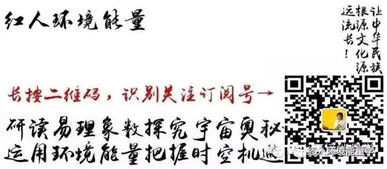 红人环境能量
让中华民族
根源文化源
远流长！
长按二维码，识别关注订阅号→
研读易理象数探究宇宙奥秘
运用环境能量把握时空机遇